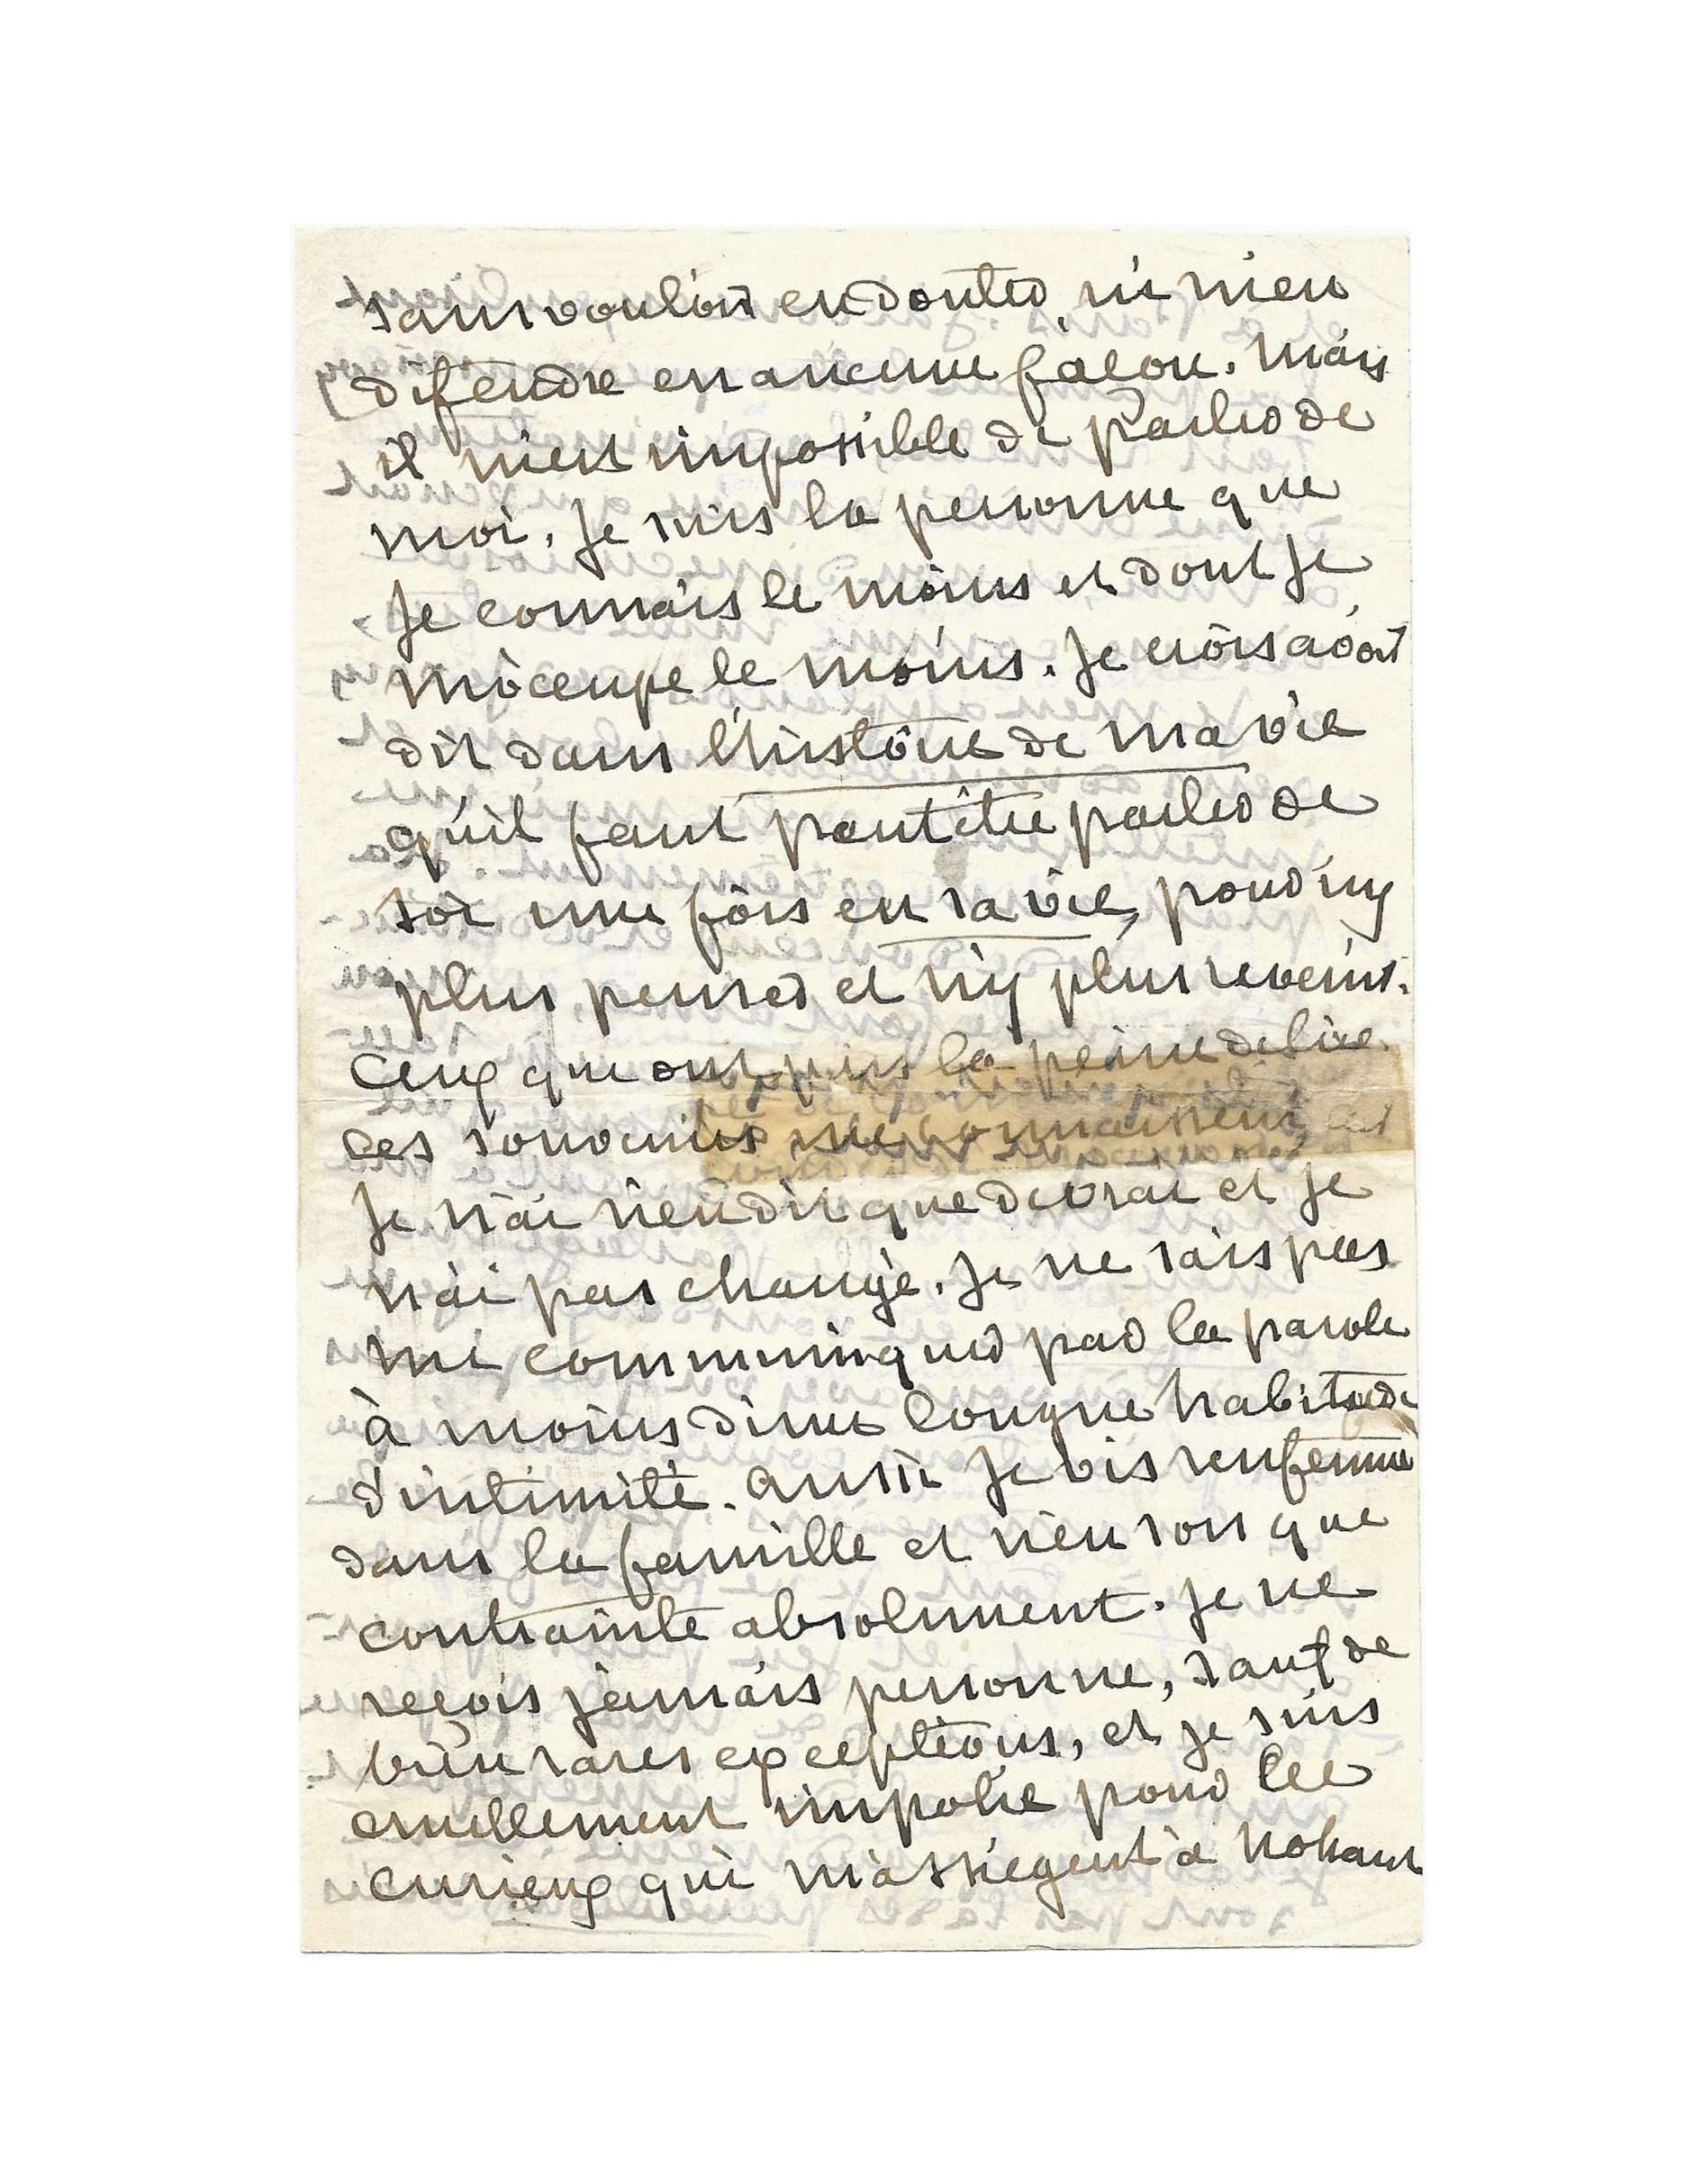 sans vouloir en douter, ni m'en
défendre en aucune façon. Mais
il m'est impossible de parler de
moi. Je suis la personne que
je connais le moins et dont je
m'occupe le moins. Je crois avoir
dit dans l'histoire de ma vie
qu'il faut peut être parler de
soi une fois en sa vie, pour n'y
plus penser et n'y plus revenir.
Ceux qui ont pris la peine de lire
ces souvenirs me connaissent, car
je n'ai rien dit que de vrai et je
n'ai pas changé. Je ne sais pas
me communiquer par la parole
à moins d'une longue habitude
d'intimité. Aussi je vis renfermée
dans la famille et rien son que
contrainte absolument. Je ne
reçois jamais personne, sauf de
bien rares exceptions, et je suis
cruellement impolie pour les
curieux qui m'assiègent à Nohant